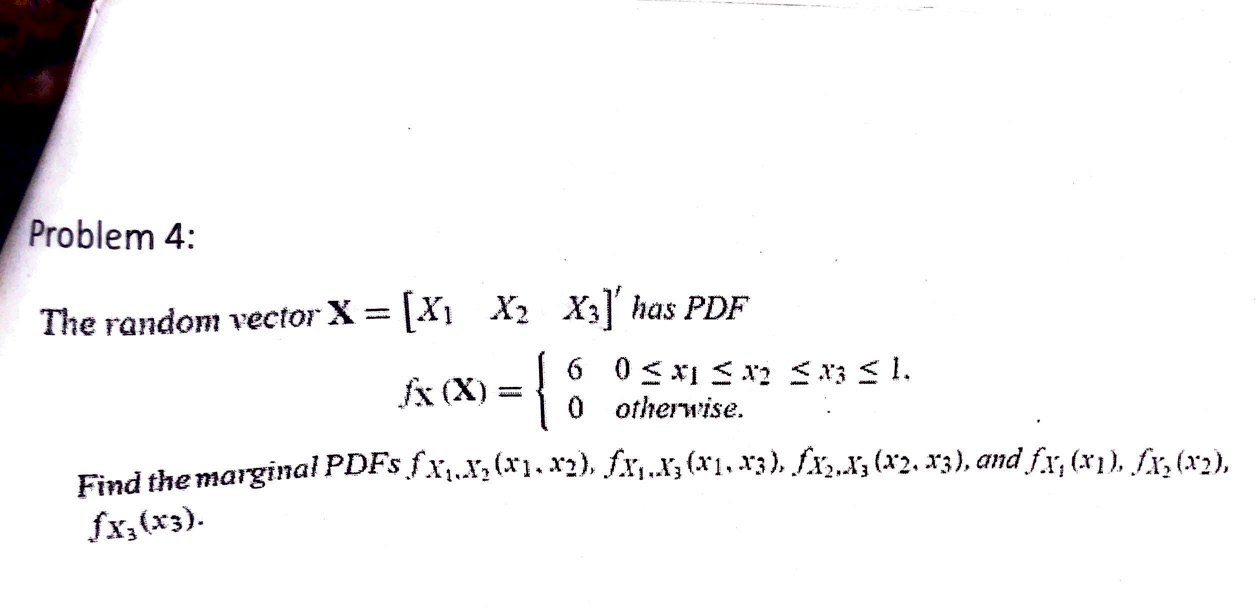 Problem 4:
The random vector X = [X₁ X₂ X₃]′ has PDF
f_X (X) = { 6 0 ≤ x₁ ≤ x₂ ≤ x₃ ≤ 1,
0 otherwise.
Find the marginal PDFs f_X₁,X₂(x₁, x₂), f_X₁,X₃(x₁, x₃), f_X₂,X₃(x₂, x₃), and f_X₁(x₁), f_X₂(x₂),
f_X₃(x₃).